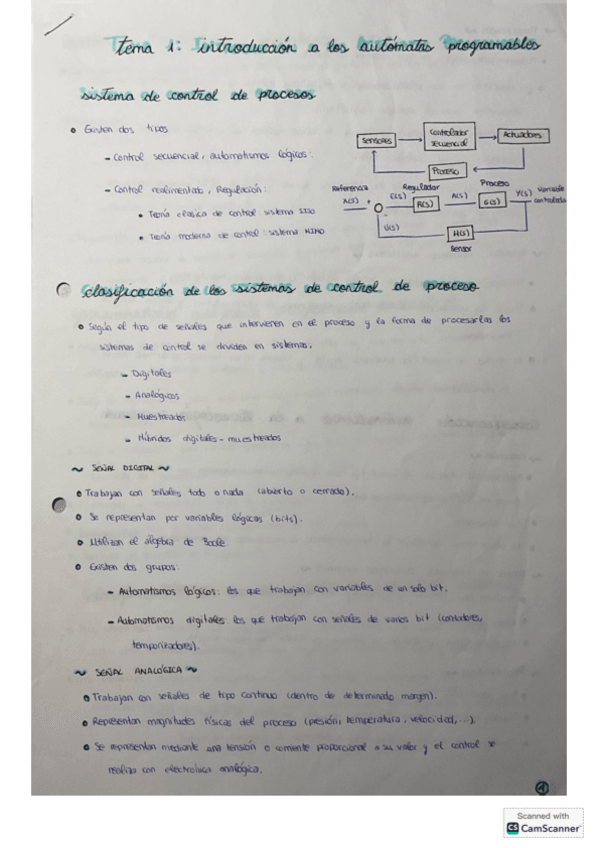 tema 1: introducción a los autómatas programables
sistema de control de procesos
Existen dos tipos
- Control secuencial, automatismos lógicos:
- Control realimentado, Regulación:
• Teoría clásica de control sistema SISO
• Teoría moderna de control: sistema MIMO
Sensores
Controlador secuencial
Actuadores
Proceso
Referencia
X(s)
+
-
E(s)
Regulador
R(s)
A(s)
Proceso
G(s)
Y(s)
Variable controlada
U(s)
H(s)
Sensor
clasificación de los sistemas de control de proceso
Según el tipo de señales que intervienen en el proceso y la forma de procesarlas los
sistemas de control se dividen en sistemas:
- Digitales
- Analógicos
- Muestreados
- Híbridos digitales - muestreados
~ SEÑAL DIGITAL ~
• Trabajan con señales todo o nada (abierto o cerrado).
• Se representan por variables lógicas (bits).
• Utilizan el álgebra de Boole
• Existen dos grupos:
- Automatismos lógicos: los que trabajan con variables de un solo bit.
- Automatismos digitales: los que trabajan con señales de varios bit (contadores,
temporizadores).
~ SEÑAL ANALÓGICA ~
• Trabajan con señales de tipo continuo (dentro de determinado margen).
• Representan magnitudes físicas del proceso (presión, temperatura, velocidad, ...).
• Se representan mediante una tensión o corriente proporcional a su valor y el control se
realiza con electrónica analógica.
1
Scanned with
CS CamScanner